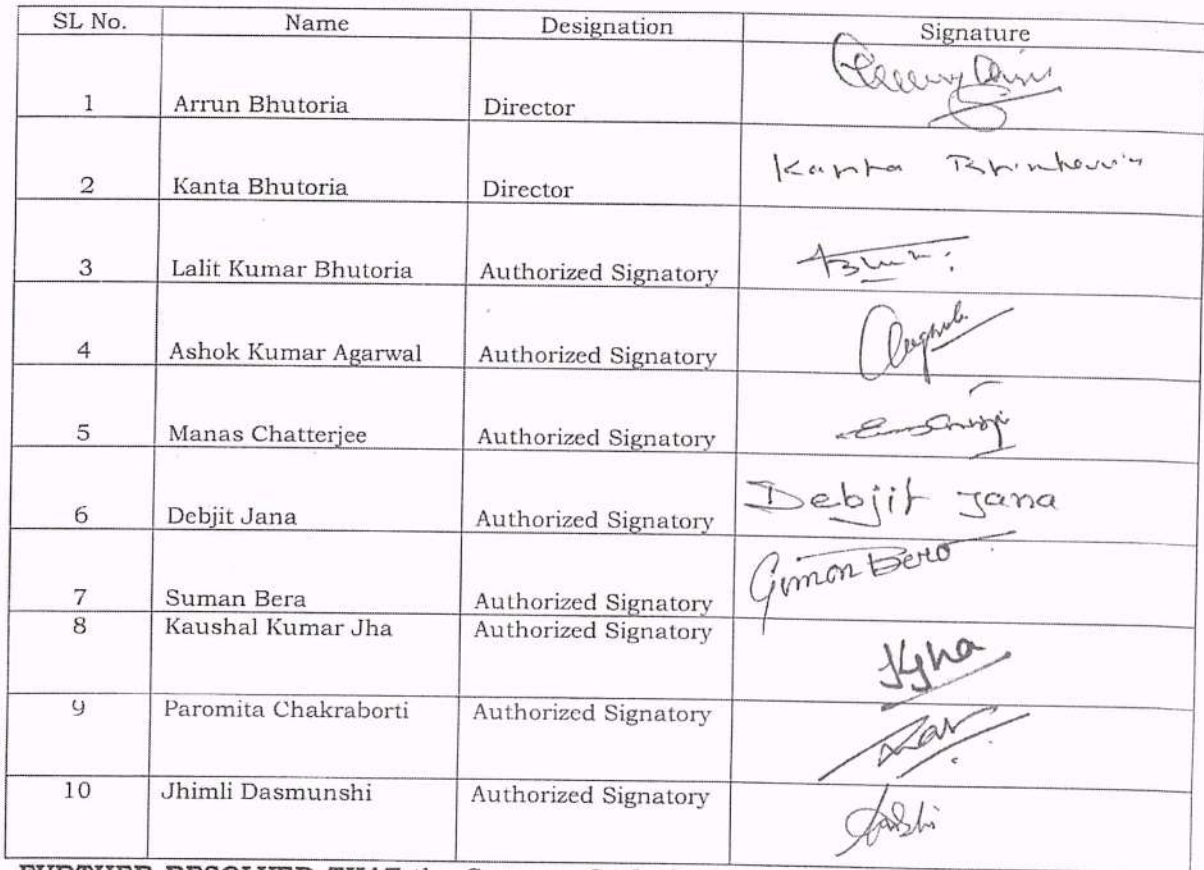 SL No. Name Designation Signature
1 Arrun Bhutoria Director
2 Kanta Bhutoria Director Kanta
3 Lalit Kumar Bhutoria Authorized Signatory
4 Ashok Kumar Agarwal Authorized Signatory
5 Manas Chatterjee Authorized Signatory
6 Debjit Jana Authorized Signatory Debjit Jana
7 Suman Bera Authorized Signatory
8 Kaushal Kumar Jha Authorized Signatory KJha
9 Paromita Chakraborti Authorized Signatory
10 Jhimli Dasmunshi Authorized Signatory
FURTHER RESOLVED THAT the